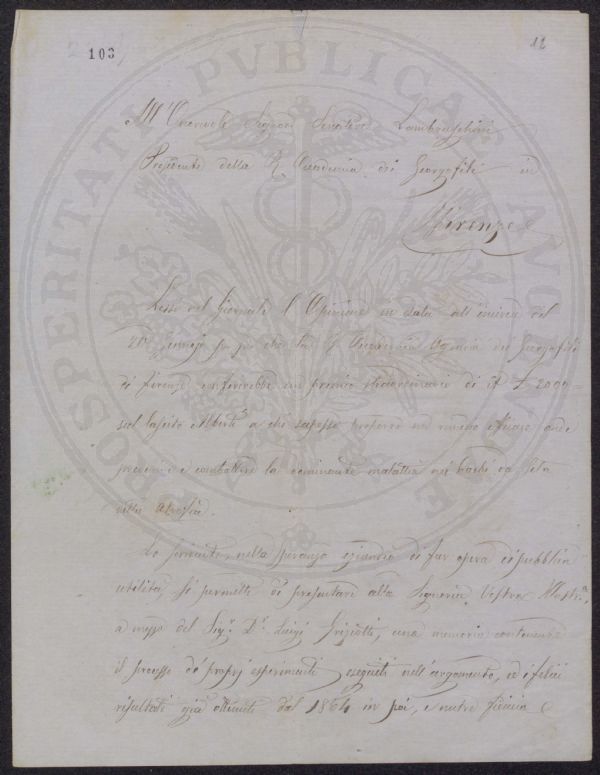 103
12
All'Onorevole Signor Senatore Lambruschini
Presidente della R. Accademia dei Georgofili in
Firenze
Lessi nel Giornale l'Opinione in data all'incirca del
20 che la R. Agraria dei Georgofili
di Firenze conferirebbe un premio straordinario di it £ 2000=
sul lascito Alberti a chi sapesse proporre un mezzo efficace onde
prevenire e combattere la dominante malattia nei bachi da seta
detta atrofia.
Lo scrivente, nella speranza eziandio di far opera di pubblica
utilità, si permette di presentare alla Signoria Vostra Illustr.ma
a mezzo del Sig.r D.r Luigi Griziotti, una memoria contenente
il processo de' proprj esperimenti eseguiti nell'argomento, ed i felici
risultati già ottenuti dal 1864 in poi, e nutre fiducia
PROSPERITATI PVBLICAE AVGENDAE